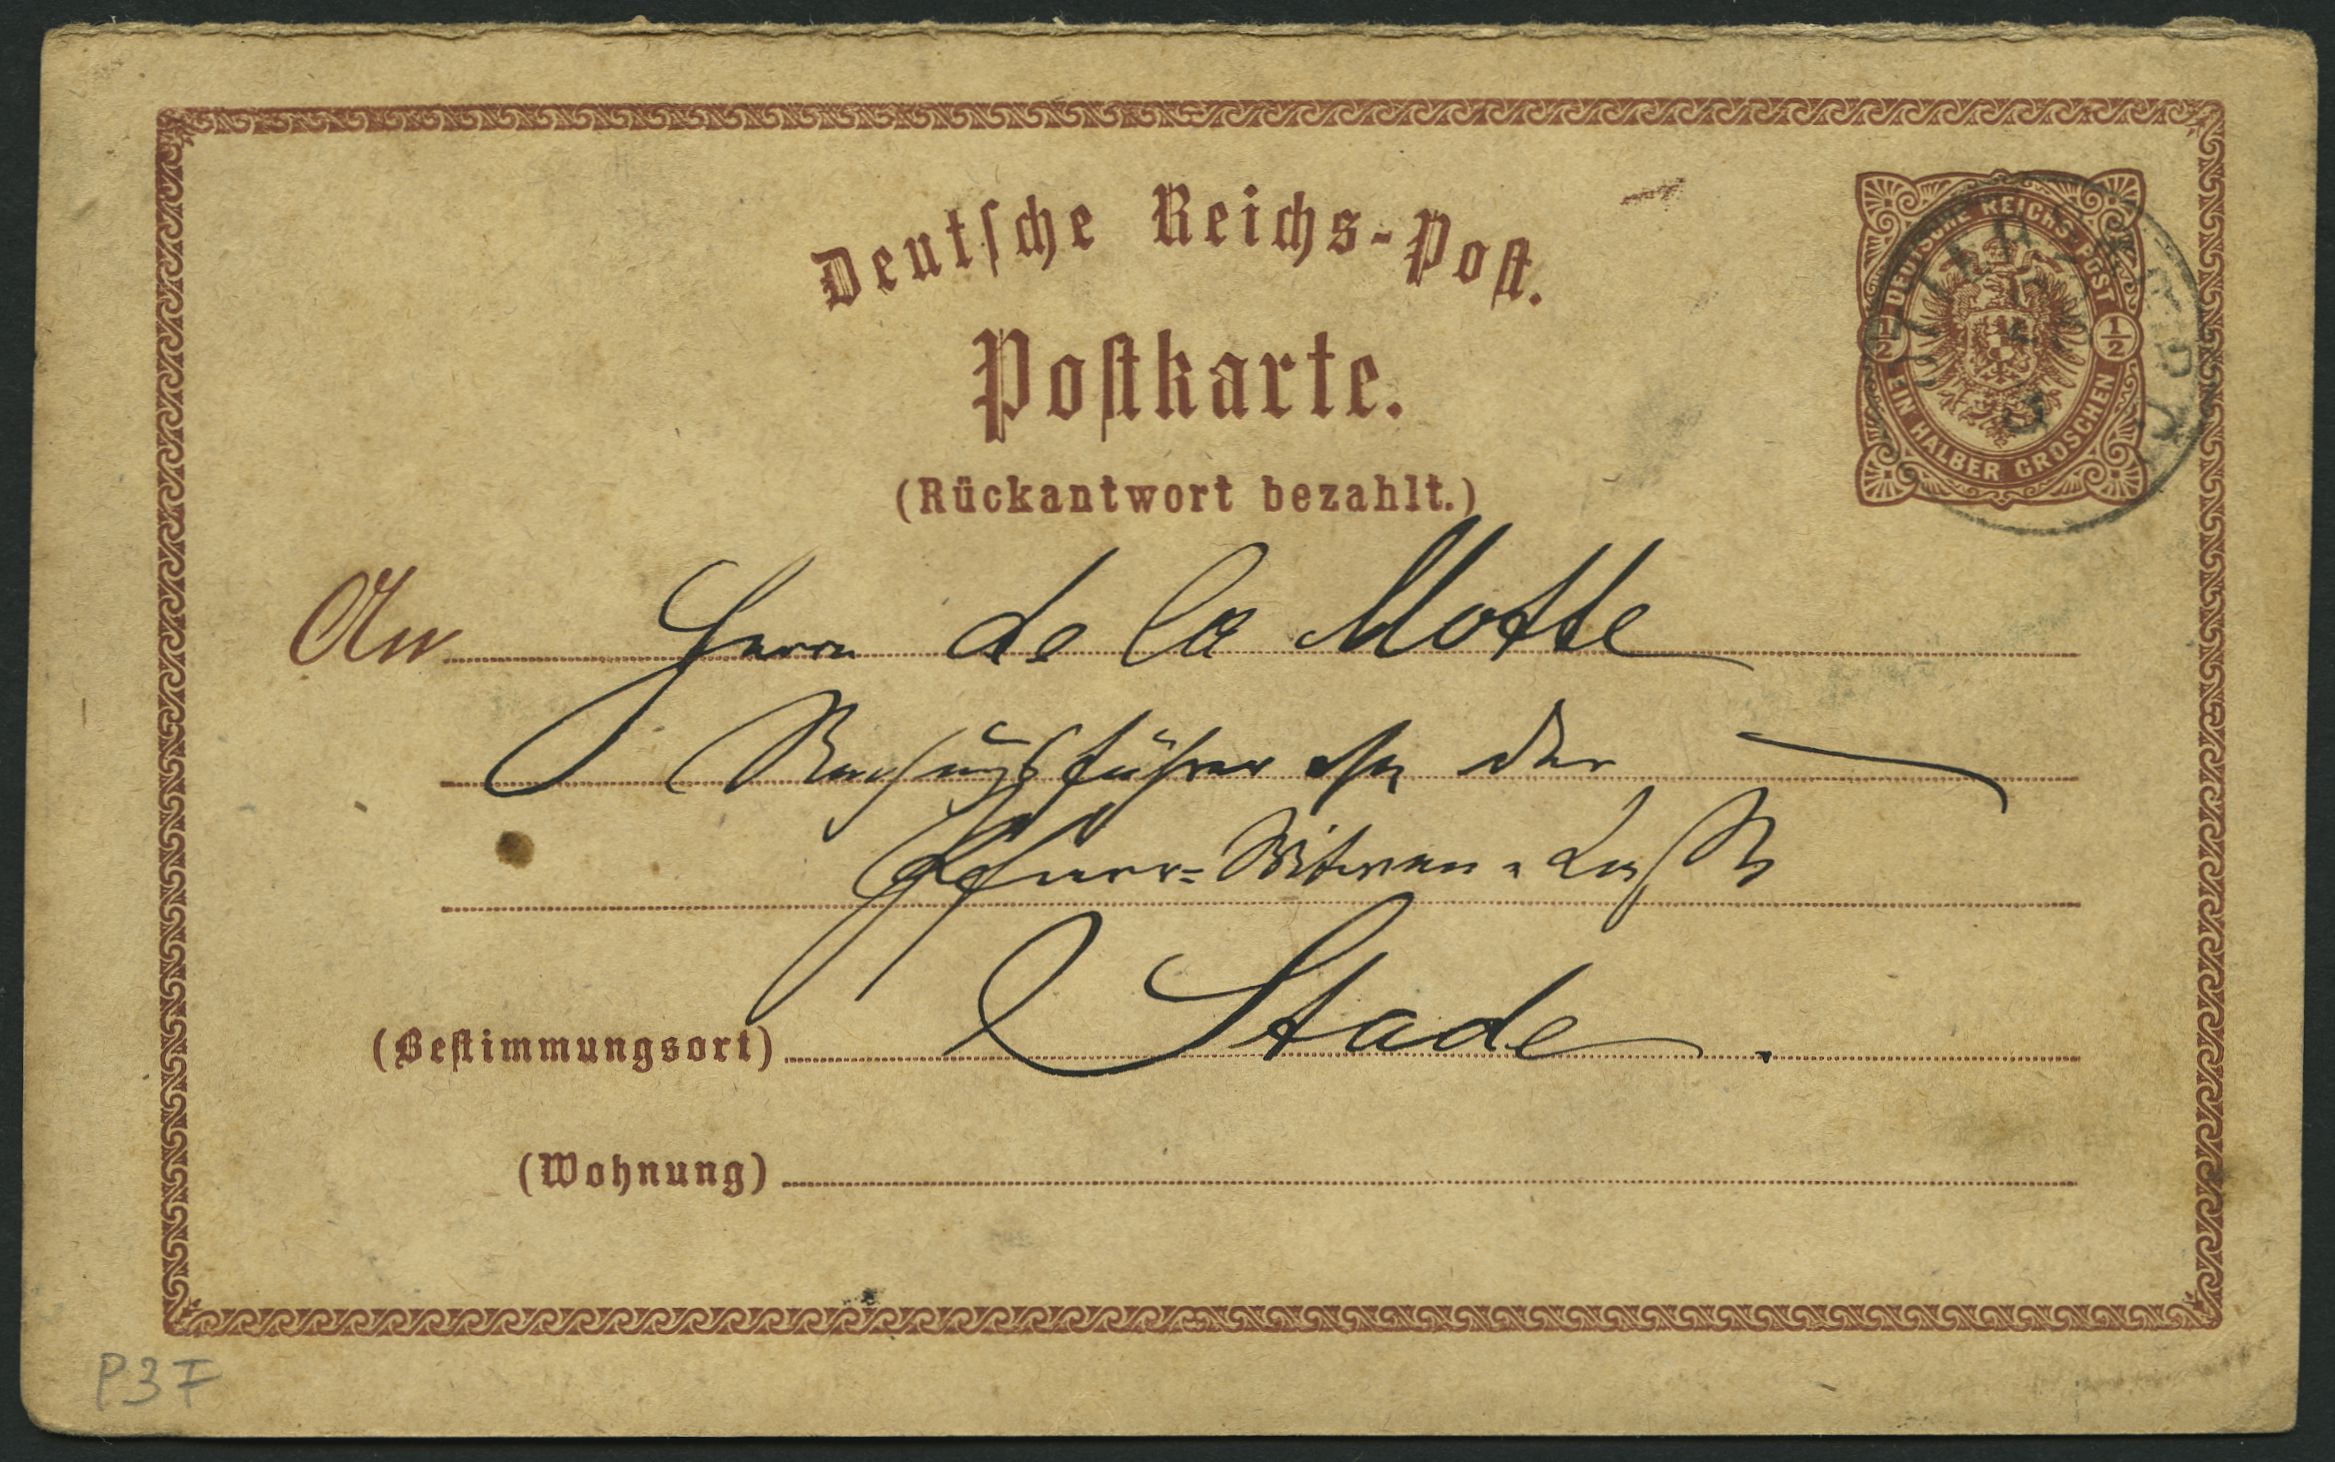 Deutsche Reichs-Post.
Postkarte.
(Rückantwort bezahlt.)
DEUTSCHE REICHS-POST
1/2 1/2
EIN HALBER GROSCHEN
An Herrn de la Motte
Rechnungsführer der
Pfarr-Witwen-Kasse
(Bestimmungsort) Stade.
(Wohnung)
P3F